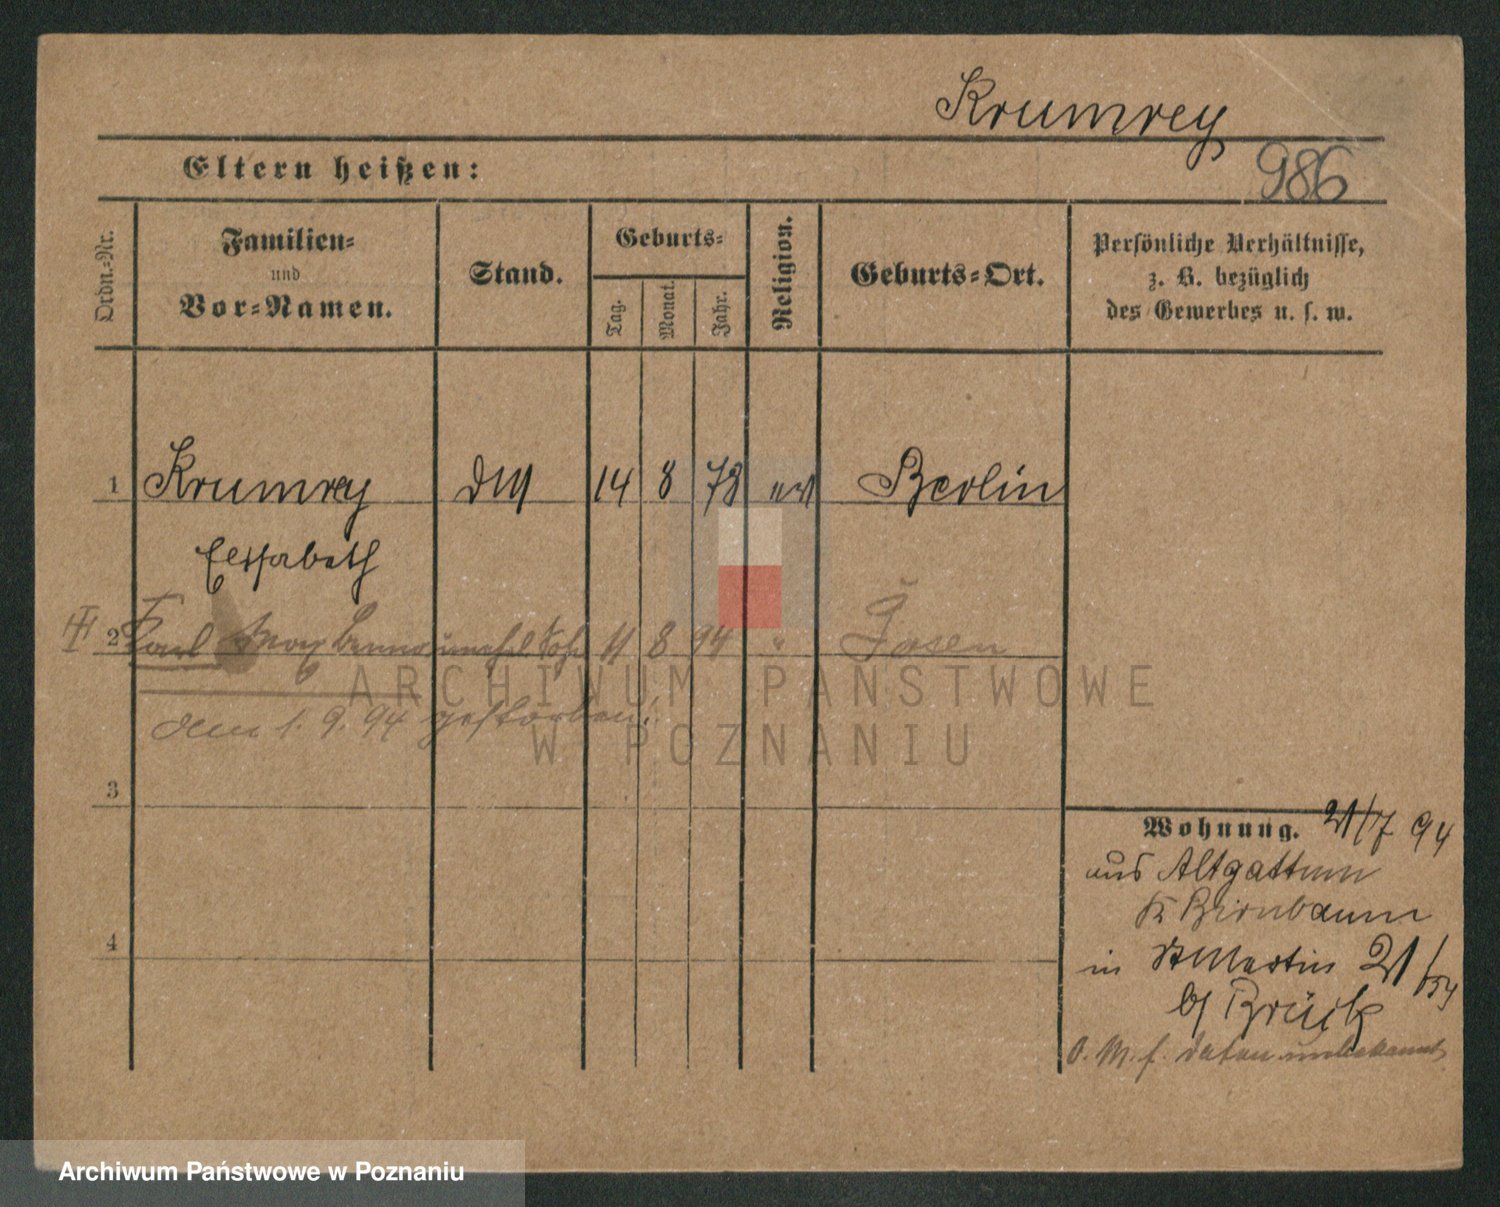 Krumrey
986
Eltern heißen:
Ordn.-Nr.
Familien- und Vor-Namen.
Stand.
Geburts-
Tag.
Monat.
Jahr.
Religion.
Geburts-Ort.
Persönliche Verhältnisse,
z. B. bezüglich
des Gewerbes u. s. w.
1 Krumrey 14 8 78 Berlin
Elisabeth
2 Karl Max Benno unehel. Sohn 11 8 94 " Posen
den 1. 9. 94 gestorben.
ARCHIWUM PAŃSTWOWE
W POZNANIU
3
4
Wohnung. 21/7 94
aus Altgattum
K Birnbaum
in St Martin 21/
b/ Brück
Archiwum Państwowe w Poznaniu